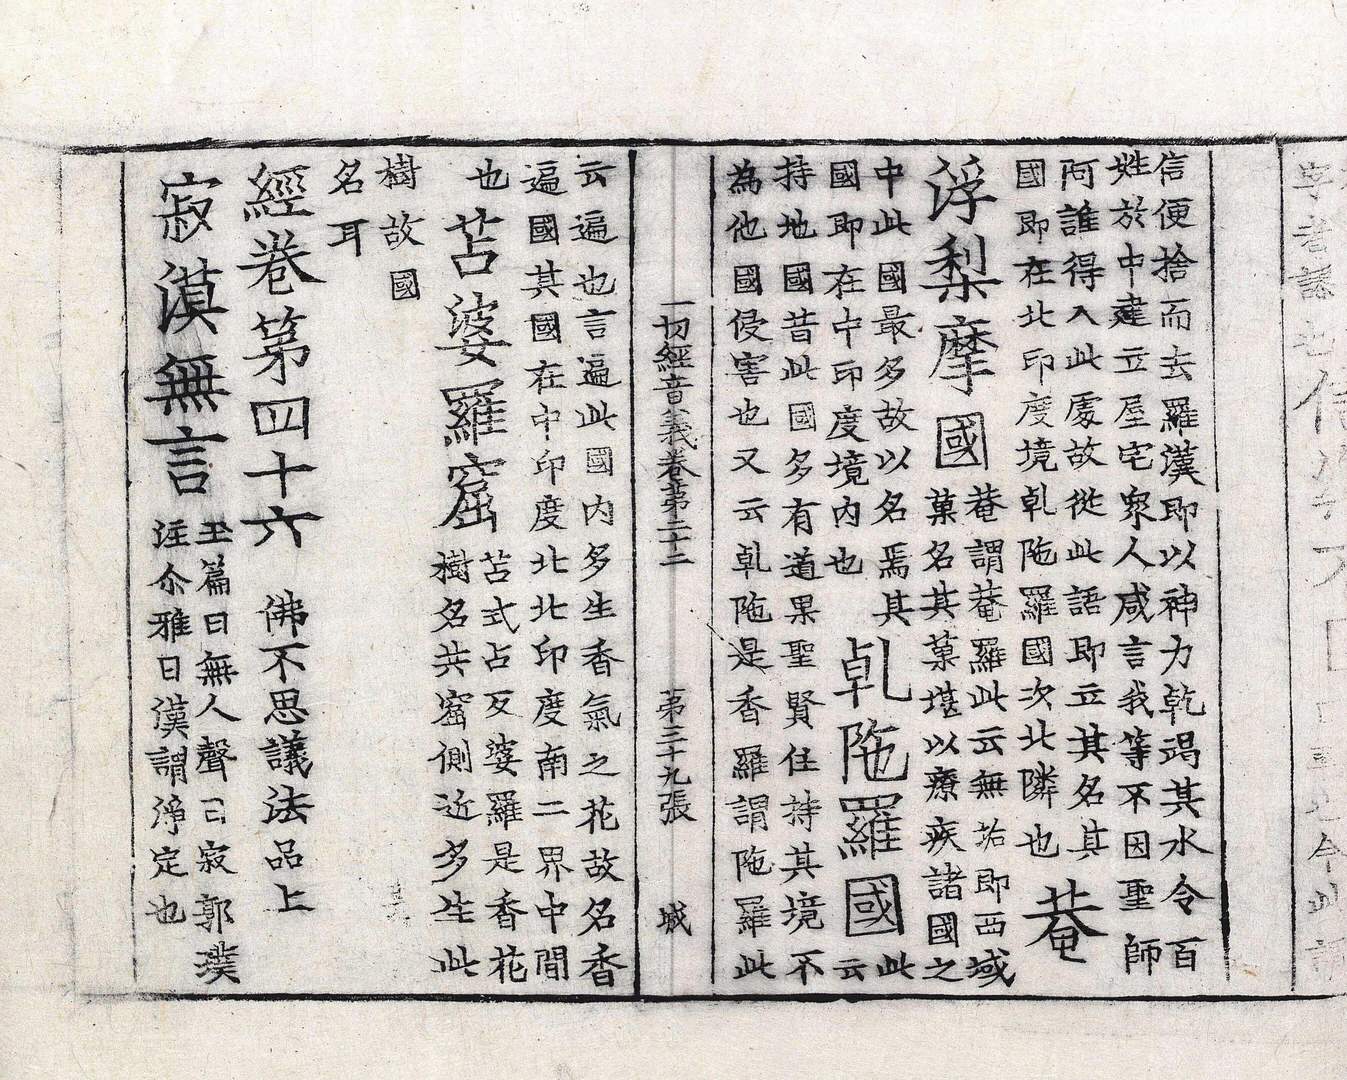 信便捨而去羅漢即以神力乾竭其水令百
姓於中建立屋宅衆人咸言我等不因聖師
阿誰得入此處故從此語即立其名其
國即在北印度境乹陁羅國次北隣也
菴
浮梨摩國
菴謂菴羅此云無垢即西域
菓名其菓堪以療疾諸國之
中此國最多故以名焉其
國即在中印度境內也
乹陁羅國
此
云
持地國昔此國多有道果聖賢住持其境不
為他國侵害也又云乹陁是香羅謂陁羅此
一切經音義卷第二十二 第三十九張 城
云遍也言遍此國內多生香氣之花故名香
遍國其國在中印度北北印度南二界中間
也
苫婆羅窟
苫式占反婆羅是香花
樹名共窟側近多生此
樹故國
名耳
經卷第四十六 佛不思議法品上
寂漠無言
玉篇曰無人聲曰寂郭璞
注尒雅曰漠謂浄定也